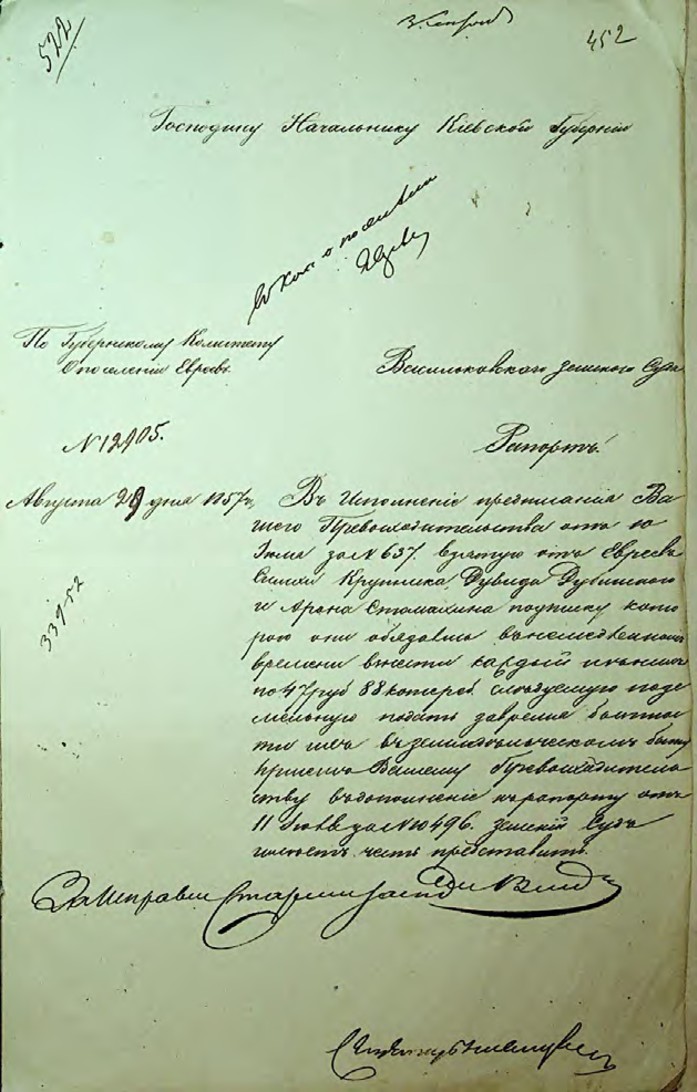 522
452
Господину Начальнику Кіевской Губерніи
о поселеніи
По Губернскому Комитету
О поселеніи Евреевъ.
Васильковскаго Земскаго Суда
N 12905.
Рапортъ.
Августа 29 дня 1857 г.
Въ Исполненіе предписанія Ва
шего Превосходительства отъ 10
Іюля за N 637. взятую отъ Евреевъ
Крупника Дувида Дубинского
и Арона Стомахина подписку кото
рою они обязались въ непродолжительномъ
времени внести каждый изъ нихъ
по 47 руб 88 коп сереб. слѣдуемую позе
мельную подать за время бытнос
ти ихъ въ земледѣльческомъ быту
при семъ Вашему Превосходитель
ству въ дополненіе къ рапорту отъ
11 Іюля за N 10496. Земскій Судъ
имѣетъ честь представить.
33952
За Исправника Старшій Засѣдатель